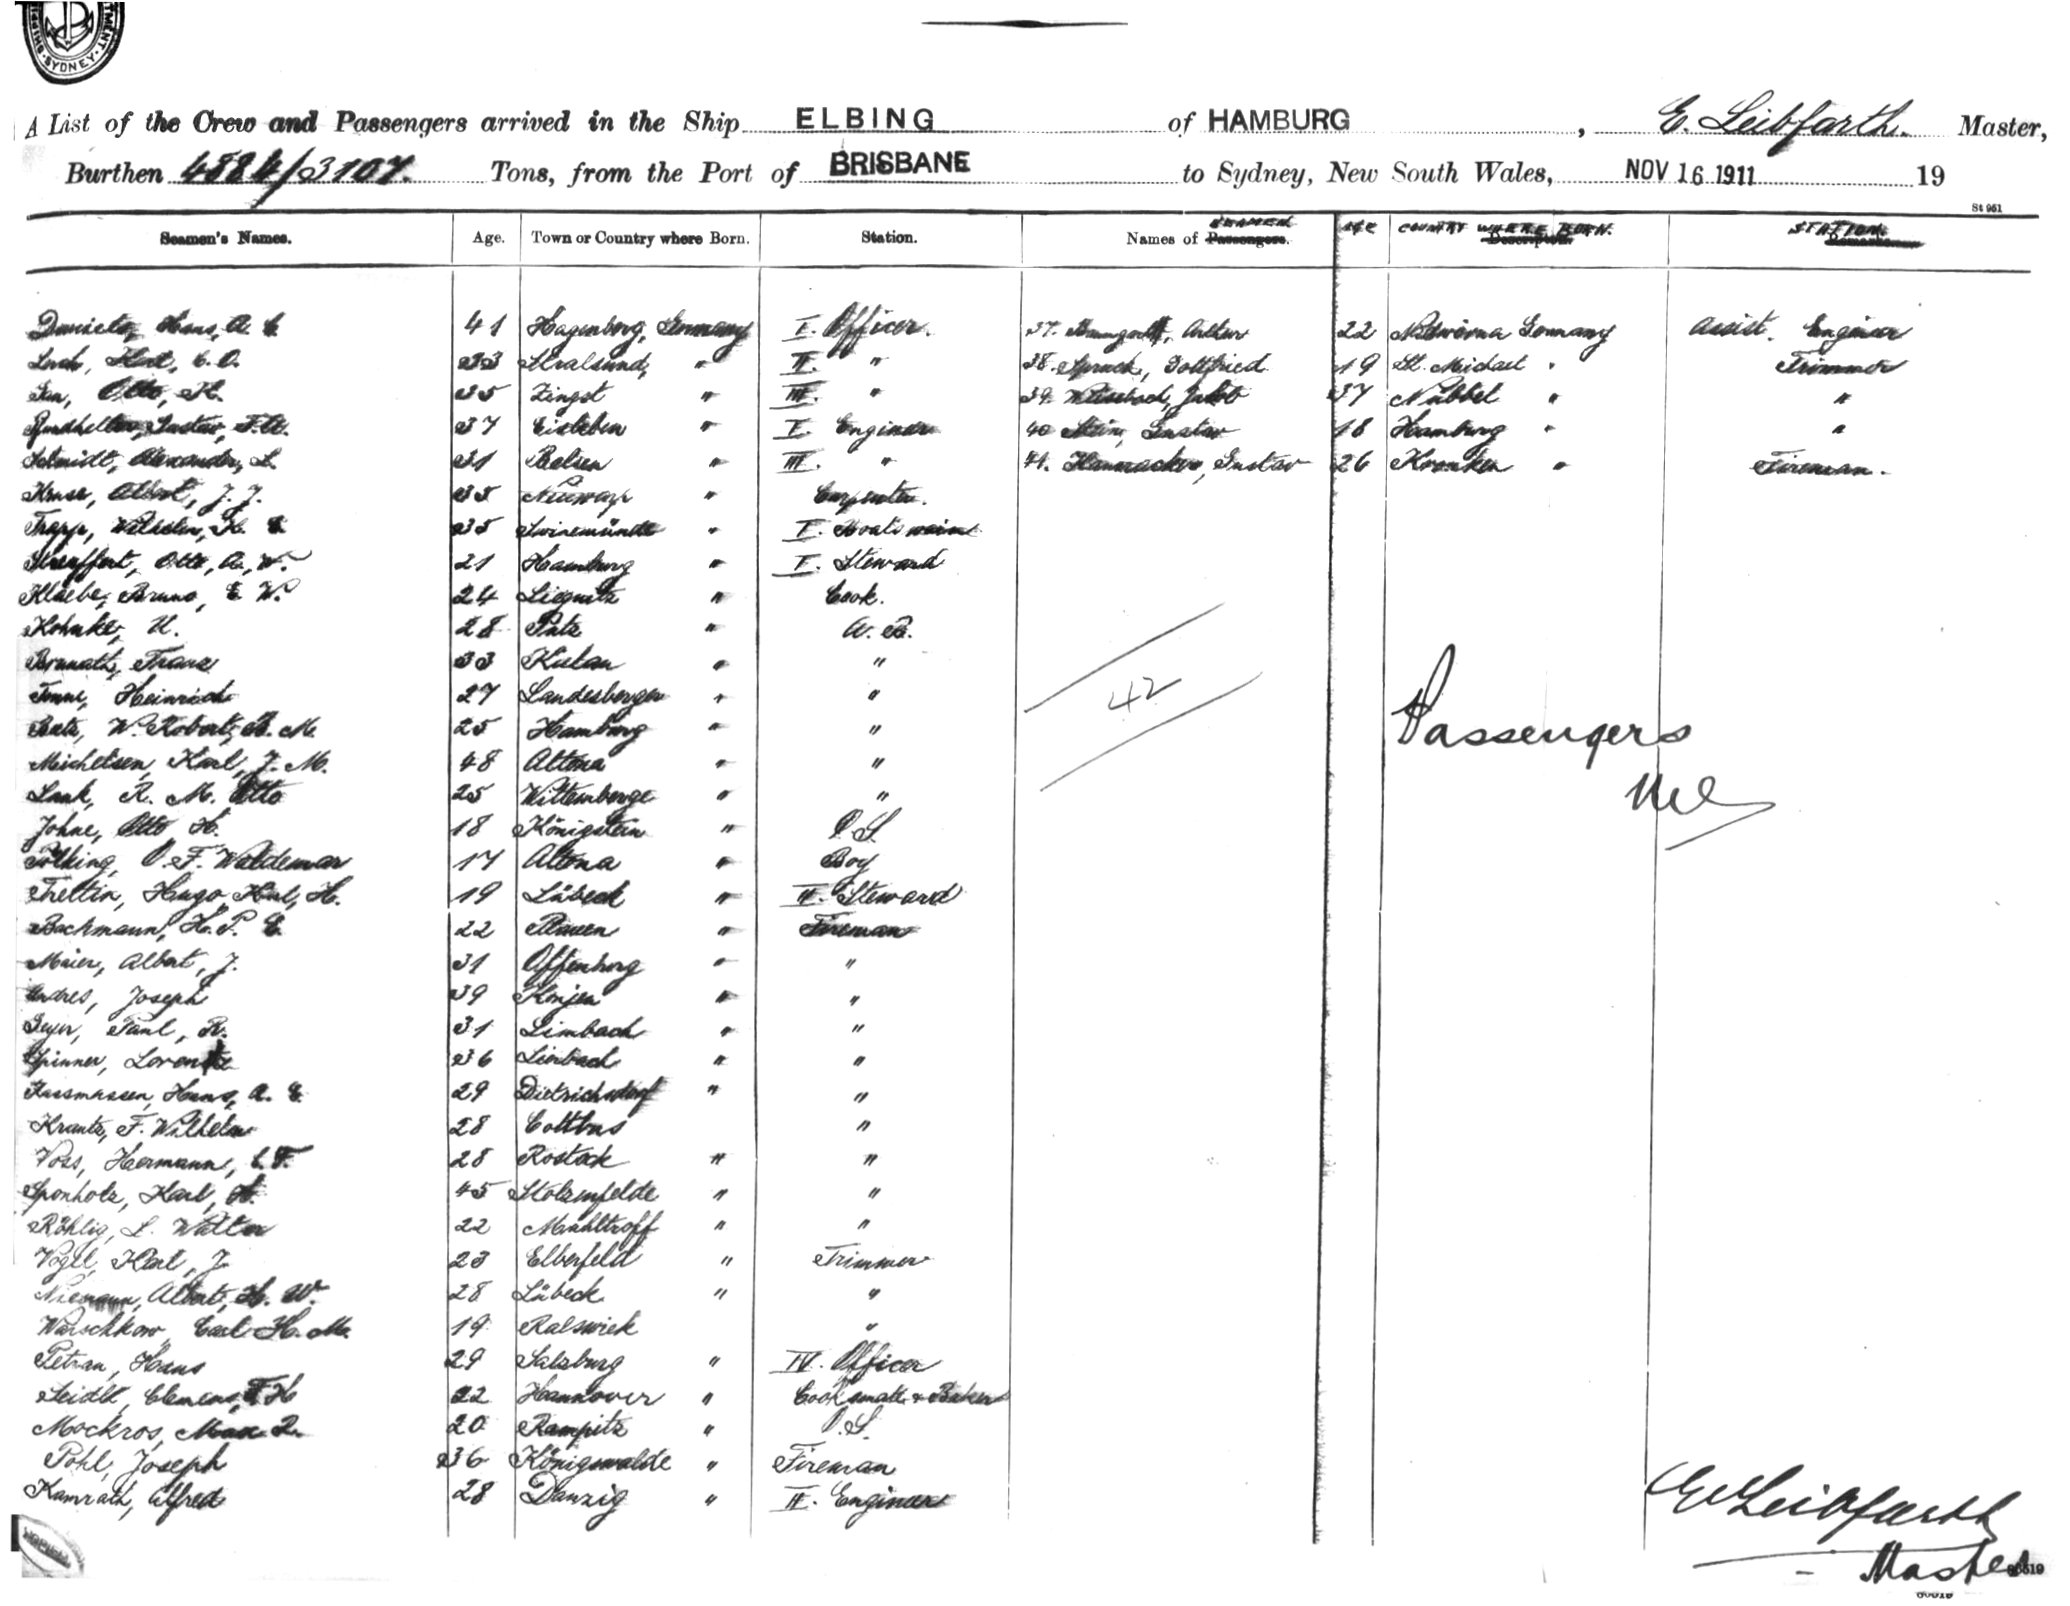 SYDNEY
A List of the Crew and Passengers arrived in the Ship ELBING of HAMBURG, E. Leibfarth. Master,
Burthen 4884/3107. Tons, from the Port of BRISBANE to Sydney, New South Wales, NOV 16 1911 19
St 951
Seamen's Names. Age. Town or Country where Born. Station. Names of Passengers. SEAMEN AGE COUNTRY WHERE BORN. STATION
Hans, A. E. 41 Hagenberg, Germany I. Officer. 37. Arthur 22 Germany Assist. Engineer
Kurt, C. O. 33 Stralsund, " II. " 38. Spruck, Gottfried 19 St. Michael " Trimmer
Otto, K. 35 Zingst " III. " 39. Jakob 37 Nübbel " "
Gustav, F. W. 37 Eisleben " I. Engineer 40 Stein, Gustav 18 Hamburg " "
Schmidt, Alexander, L. 31 Belsen " III. " 41. Gustav 26 Fireman.
Kruse, Albert, J. J. 35 Neuwarp " Carpenter.
Trapp, Wilhelm, K. E. 35 Swinemünde " I. Boatswain
Otto, A. W. 21 Hamburg " I. Steward
Klaebe, Bruno, E. W. 24 Liegnitz " Cook.
Kohnke, U. 28 Putz " A. B.
Franz 33 " "
Heinrich 27 Landesbergen " "
W. Robert, B. M. 25 Hamburg " "
42
Michelsen, Karl, J. M. 48 Altona " "
Passengers
Laak, R. M. Otto 25 Wittemberge " "
Nil
Johne, Otto H. 18 Königstein " O. S.
Pölking, O. F. Waldemar 17 Altona " Boy
Trettin, Hugo, Karl, H. 19 Lübeck " II. Steward
Bachmann, H. P. E. 22 Plauen " Fireman
Maier, Albert, J. 31 Offenburg " "
Andres, Joseph 39 " "
Geyer, Paul, R. 31 Limbach " "
Spinner, Lorentz 36 Lierbach " "
Rassmussen, Hans, A. E. 29 Dietrichsdorf " "
Krantz, F. Wilhelm 28 Cottbus "
Voss, Hermann, C. F. 28 Rostock " "
Sponholz, Karl, H. 45 Stolzenfelde " "
Röhlig, L. Walter 22 Mühltroff " "
Vogel, Karl, J. 23 Elberfeld " Trimmer
Niemann, Albert, H. W. 28 Lübeck " "
Warschkow, Carl H. M. 19 Ralswiek "
Petran, Hans 29 Salzburg " IV. Officer
Seidel, Clemens, F. H 22 Hannover " Cooksmate & Baker
Mockros, Max R. 20 Rampitz " O. S.
Pohl, Joseph 36 Königswalde " Fireman
Kamrath, Alfred 28 Danzig " II. Engineer
E. Leibfarth
Master